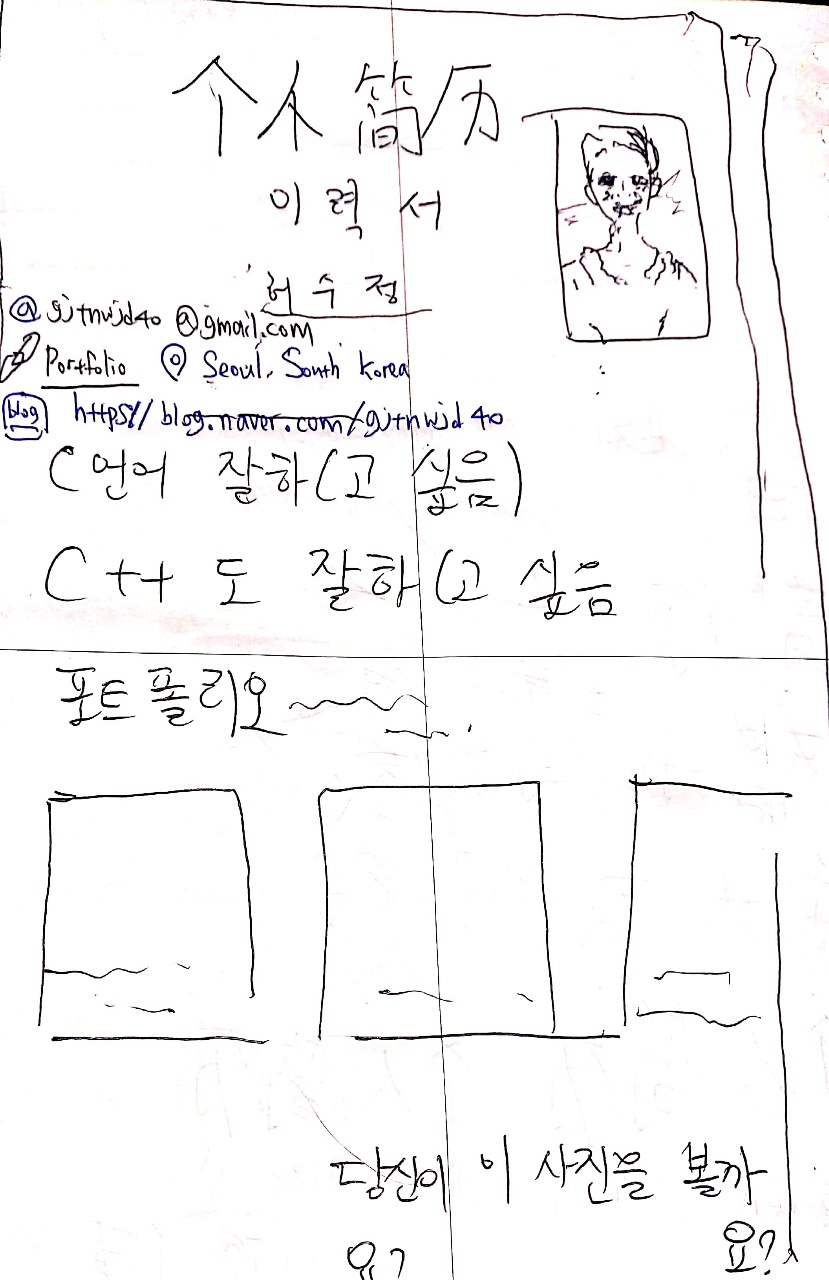 个人简历
이력서
허수정
@ gjtnwjd40@gmail.com
Portfolio Seoul, South Korea
blog https// blog.naver.com/gjtnwjd40
C언어 잘하(고 싶음)
C++도 잘하(고 싶음
포트폴리오
당신이 이 사진을 볼까
요? 요?